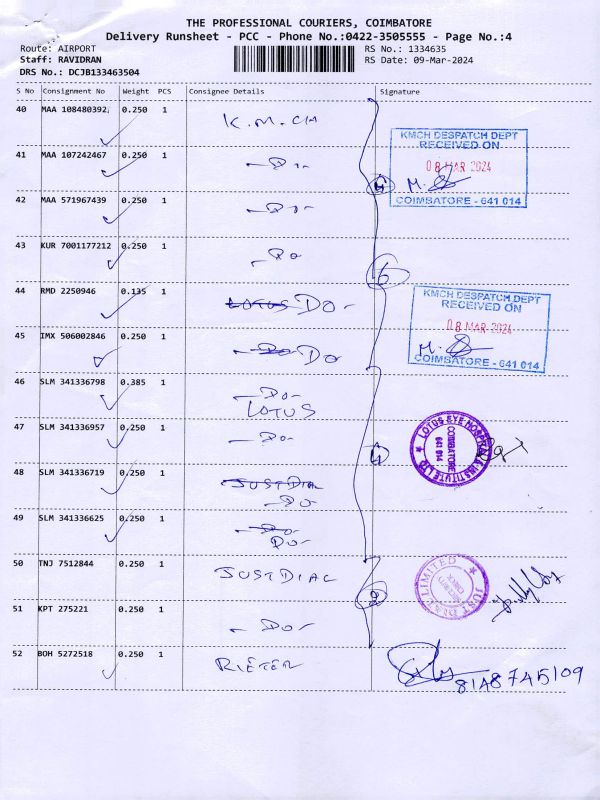 THE PROFESSIONAL COURIERS, COIMBATORE
Delivery Runsheet - PCC - Phone No.:0422-3505555 - Page No.:4
Route: AIRPORT
RS No.: 1334635
Staff: RAVIDRAN
RS Date: 09-Mar-2024
DRS No.: DCJB133463504
S No Consignment No Weight PCS Consignee Details Signature
40 MAA 108480392, 0.250 1 K.M.CH
KMCH DESPATCH DEPT
RECEIVED ON
08 MAR 2024
COIMBATORE - 641 014
41 MAA 107242467 0.250 1 - Do -
42 MAA 571967439 0.250 1 - Do -
43 KUR 7001177212 0.250 1 - Do
6
44 RMD 2250946 0.135 1 LOTUS DO -
KMCH DESPATCH DEPT
RECEIVED ON
08 MAR 2024
COIMBATORE - 641 014
45 IMX 506002846 0.250 1 - Do Do
46 SLM 341336798 0.385 1 - Do -
LOTUS
47 SLM 341336957 0.250 1 - Do -
4
LOTUS EYE HOSPITAL & INSTITUTE LTD
COIMBATORE
641 014
48 SLM 341336719 0.250 1 JUSTDIAL
- Do
49 SLM 341336625 0.250 1 - Do -
Do -
50 TNJ 7512844 0.250 1 JUSTDIAL
2
JUST DIAL LIMITED
51 KPT 275221 0.250 1 - Do -
52 BOH 5272518 0.250 1 RIETER
8148745109